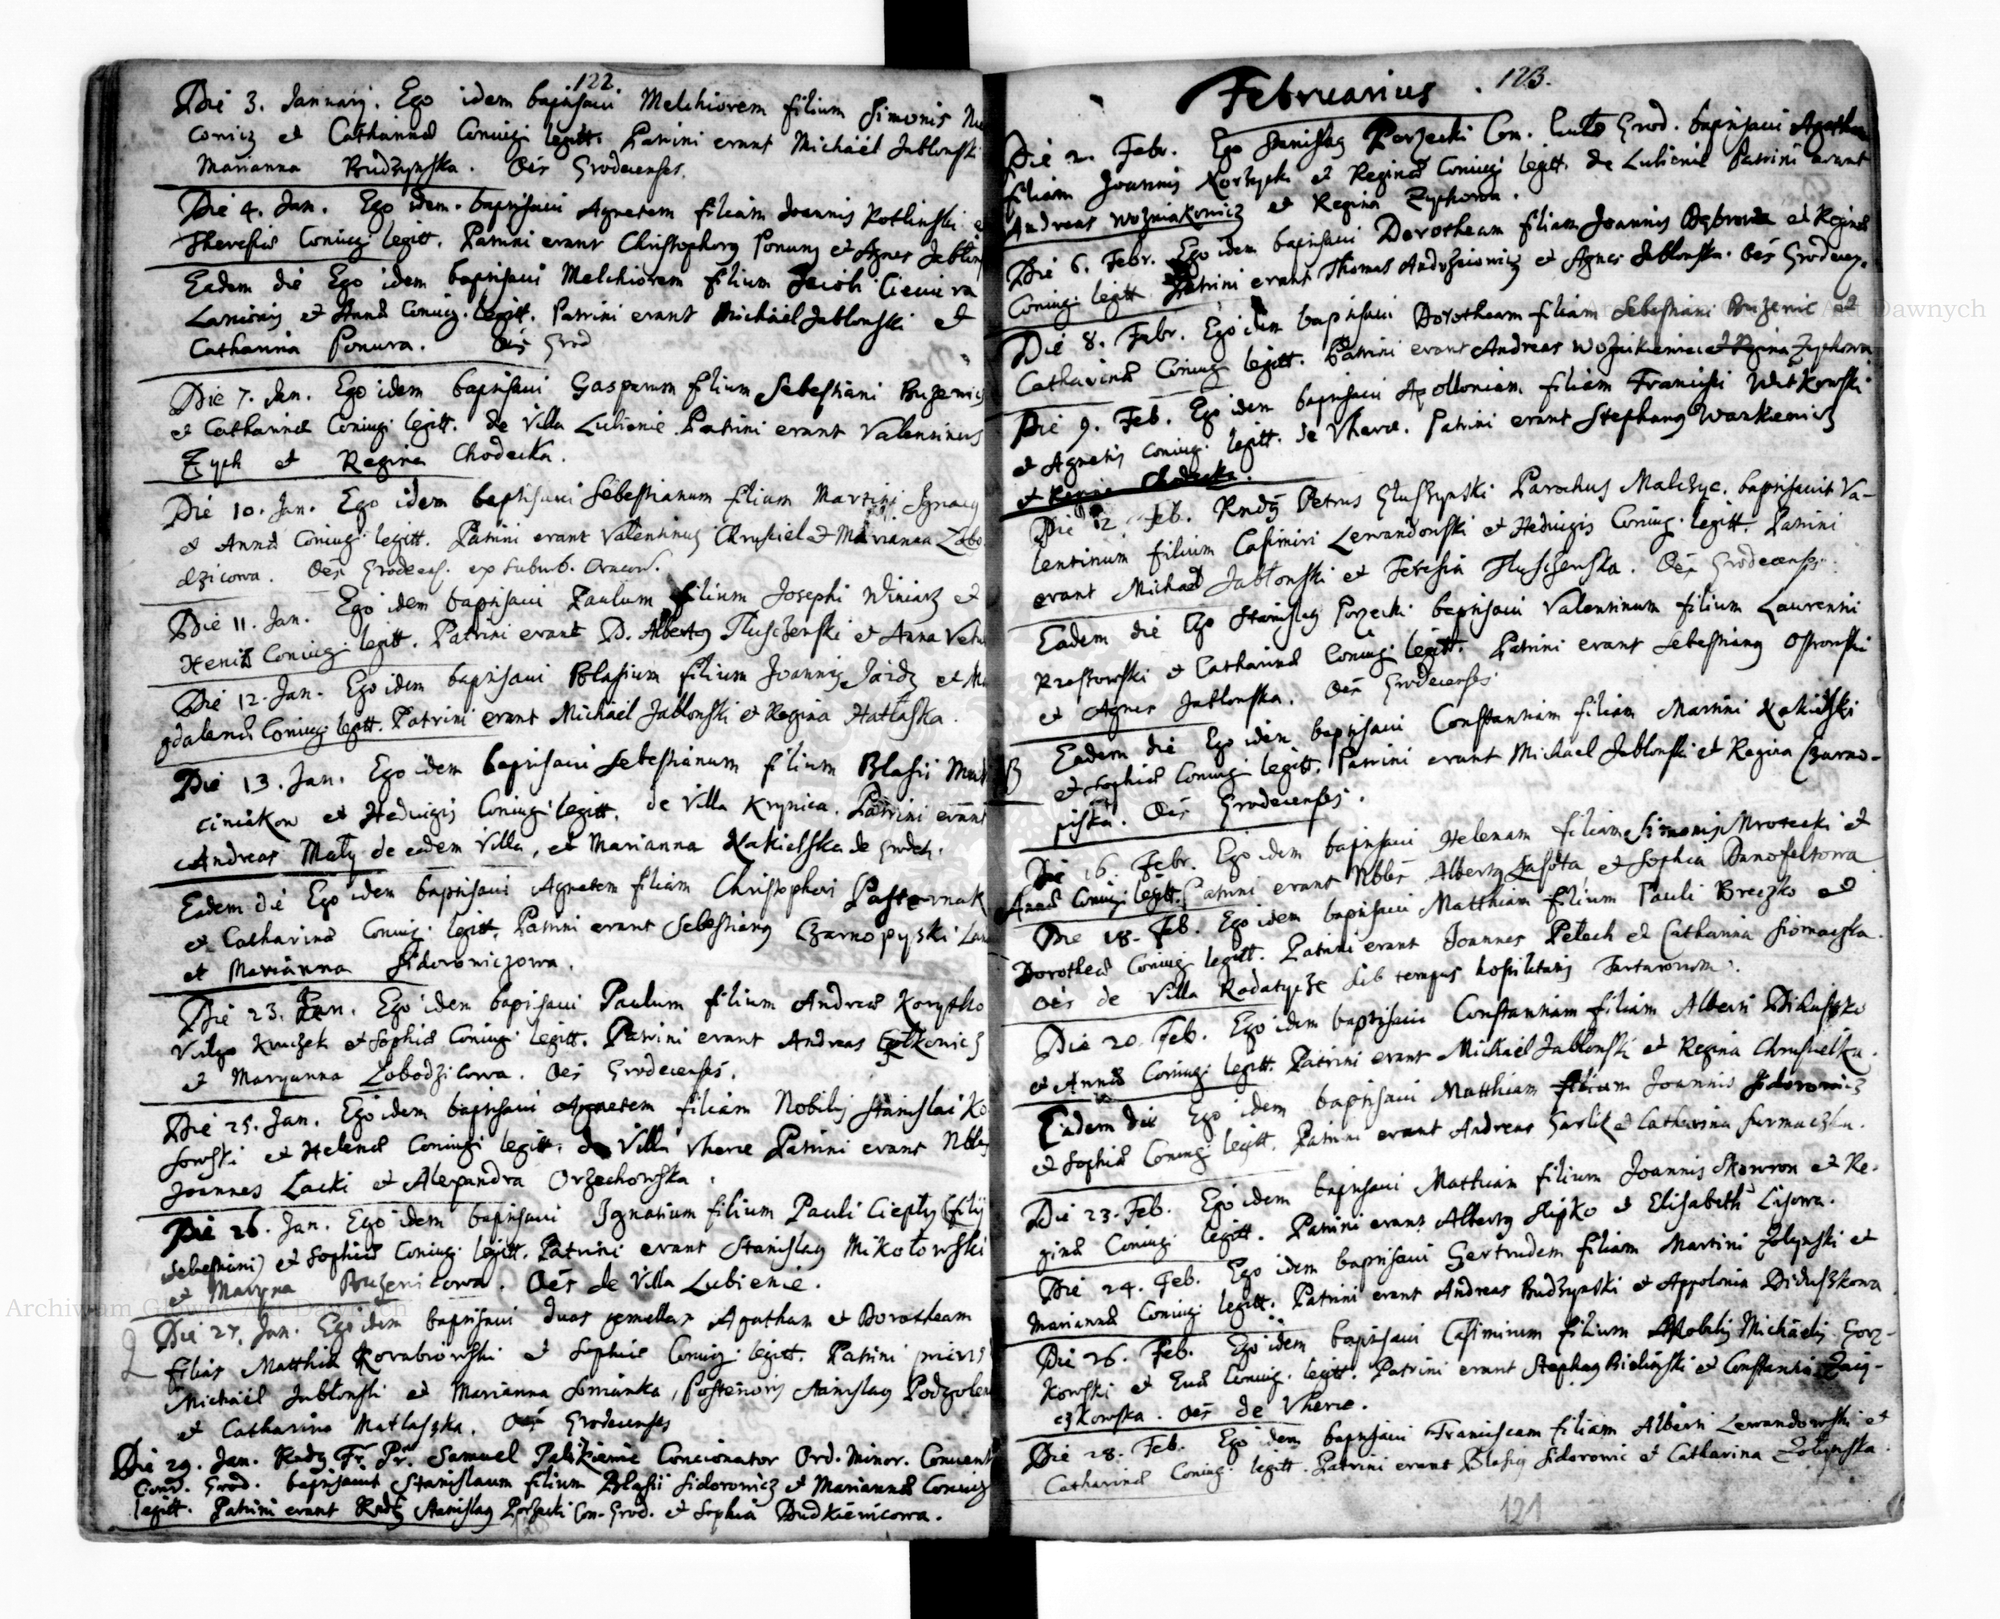 122.
Die 3. Januarij. Ego idem baptisavi Melchiorem filium Simonis
conicz et Catharinæ Coniugi legitt. Patrini erant Michaël Jablonski
Marianna Budzynska. Oēs Grodecenses.
Die 4. Jan. Ego idem baptisavi Agnetem filiam Joannis Kotlinski
Theresiæ Coniugi legitt. Patrini erant Christophorg Ponura et Agnes Jablon
Eadem die Ego idem baptisavi Melchiorem filium Jacobi
Lanionis et Annæ Coniug. legitt. Patrini erant Michaël Jablonski et
Catharina Ponura. Oēs Grod
Die 7. Jan. Ego idem baptisavi Gasparum filium Sebestiani Buzenic
et Catharinæ Coniugi legitt. de Villa Lubienie. Patrini erant Valentinus
Zych et Regina Chodecka.
Die 10. Jan. Ego idem baptisavi Sebestianum filium Martini
et Annæ Coniugi legitt. Patrini erant Valentinus Chrusciel et Marianna Lobo
dzicowa. Oēs Grodecen. ex suburb.
Die 11. Jan. Ego idem baptisavi Paulum filium Josephi Winiarz et
Coniugi legitt. Patrini erant D. Albertg Tlusczenski et Anna
Die 12. Jan. Ego idem baptisavi Blasium filium Joannis et Ma
gdalenæ Coniugi legitt. Patrini erant Michaël Jablonski et Regina Hatłaska.
Die 13. Jan. Ego idem baptisavi Sebestianum filium Blasii
ciniakow et Hedvigis Coniugi legitt. de Villa Krynica. Patrini erant
Andreas Mały de eadem Villa, et Marianna Nakielska de Grodek.
Eadem die Ego idem baptisavi Agnetem filiam Christopheri Pasternak
et Catharinæ Coniug. legitt. Patrini erant Sebestiang Czarnopyski
et Marianna Sidorowiczowa.
Die 23. Jan. Ego idem baptisavi Paulum filium Andreæ Korytko
Vulgo Kruczek et Sophiæ Coniugi legitt. Patrini erant Andreas
et Maryanna Lobodzicowa. Oēs Grodecenses.
Die 25. Jan. Ego idem baptisavi Agnetem filiam Nobilis Stanislai Ko
sowski et Helenæ Coniugi legitt. de Villa Vherce Patrini erant Nbles
Joannes Łacki et Alexandra Orzechowska.
Die 26. Jan. Ego idem baptisavi Ignatium filium Pauli Ciepły (filij
Sebestiani) et Sophiæ Coniugi legitt. Patrini erant Stanislag Mikołowski
et Maryna Buzenicowa. Oēs de Villa Lubienie.
Die 27. Jan. Ego idem baptisavi duas gemellas Agatham et Dorotheam
filias Matthiæ Korabiowski et Sophiæ Coniug. legitt. Patrini prioris
Michaël Jabłonski et Marianna, Posterioris Stanislag
et Catharina Matlaszka. Oēs Grodecenses
Die 29. Jan. Rndg Fr. Pr. Samuel Concionator Ord. Minor. Convent
Grod. baptisavit Stanislaum filium Blasii Sidorowicz et Mariannæ Coniug
legitt. Patrini erant Rndg Stanislag Porzecki Con. Grod. et Sophia Dudkiewicowa.
Februarius. 123.
Die 2. Febr. Ego Stanislag Porzecki Con. Grod. baptisavi Agatham
filiam Joannis Korzycki et Reginæ Coniugi legitt. de Lubienie Patrini erant
Andreas Wozniakowicz et Regina Zychowa.
Die 6. Febr. Ego idem baptisavi Dorotheam filiam Joannis et Reginæ
Coniugi legitt Patrini erant Thomas et Agnes Jablonska. Oēs Grodecen.
Die 8. Febr. Ego idem baptisavi Dorotheam filiam Sebestiani Buzenic et
Catharinæ Coniug legitt. Patrini erant Andreas et Regina Zychowa
Die 9. Feb. Ego idem baptisavi Apolloniam filiam Francisci Witkowski
et Agnetis coniug. legitt. de Vherce. Patrini erant Stephang Wankiewicz
et Regina Chodecka.
Die 12. Feb. Rndg Petrus Głuszynski Parochus Malczyc. baptisavit Va-
lentinum filium Casimiri Lewandowski et Hedvigis Coniug. legitt. Patrini
erant Michaël Jabłonski et Teresia Tlusczenska. Oēs Grodecenses.
Eadem die Ego Stanislag Porzecki baptisavi Valentinum filium Laurentii
Rzeszowski et Catharinæ Coniug. legitt. Patrini erant Sebestiang Ostrowski
et Agnes Jablonska. Oēs Grodecenses
Eadem die Ego idem baptisavi Constantiam filiam Martini Nakielski
et Sophiæ Coniug legitt. Patrini erant Michael Jablonski et Regina Czarno-
piska. Oēs Grodecenses.
Die 16. Febr. Ego idem baptisavi Helenam filiam Simonis Mrozecki et
Annæ Coniugi legitt. Patrini erant Nbles Albertg Lasota, et Sophia
Die 18. Feb. Ego idem baptisavi Matthiam filium Pauli Breczko et
Dorotheæ Coniug legitt. Patrini erant Joannes Pelech et Catharina
Oēs de Villa Rodatycze sub tempus hostilitatis Tartarorum.
Die 20. Feb. Ego idem baptisavi Constantiam filiam Alberti Diduszko
et Annæ Coniugi legitt. Patrini erant Michaël Jablonski et Regina Chruscielka.
Eadem die Ego idem baptisavi Matthiam filium Joannis Sidorowicz
et Sophiæ Coniugi legitt. Patrini erant Andreas Garlik et Catharina Surmaczka.
Die 23. Feb. Ego idem baptisavi Mathiam filium Joannis Skowron et Re-
ginæ Coniugi legitt. Patrini erant Albertg et Elisabeth Lisowa.
Die 24. Feb. Ego idem baptisavi Gertrudem filiam Martini Zolynski et
Mariannæ Coniugi legitt. Patrini erant Andreas Budzynski et Appolonia Diduszkowa
Die 26. Feb. Ego idem baptisavi Casimirum filium Nobilis Michaelis Gorz-
kowski et Evæ Coniug. legitt. Patrini erant Stephag Bielinski et Constantia
czkowska. Oēs de Vherce.
Die 28. Feb. Ego idem baptisavi Franciscam filiam Alberti Lewandowski et
Catharinæ Coniug. legitt. Patrini erant Blasig Sidorowic et Catharina Zolynska.
121
Archiwum Główne Akt Dawnych
Archiwum Główne Akt Dawnych